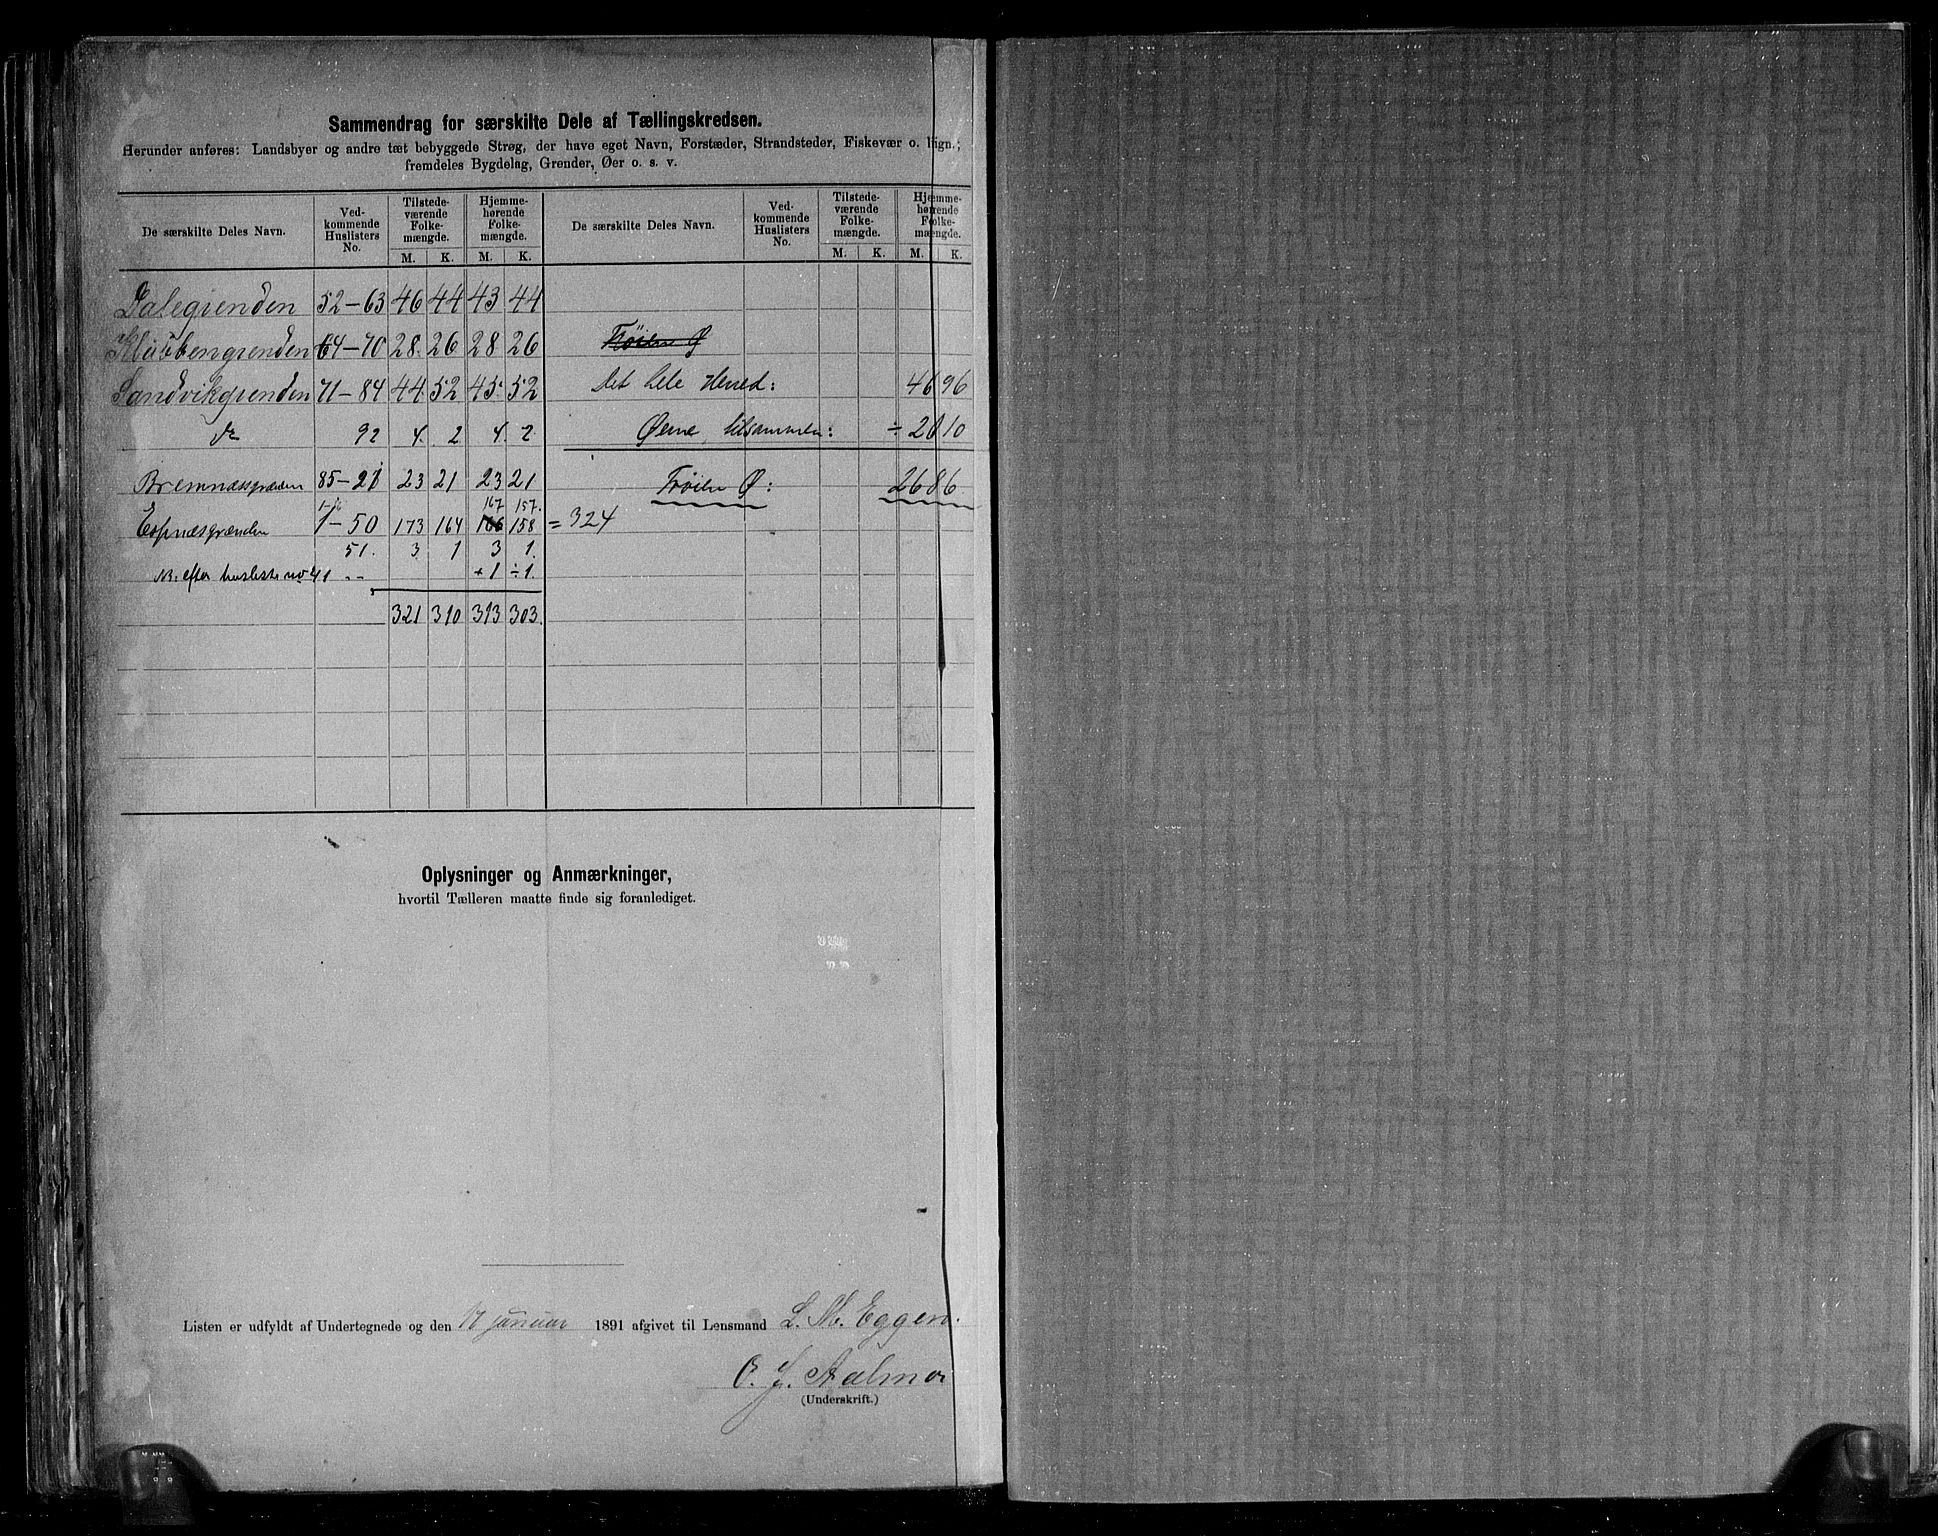 Sammendrag for særskilte Dele af Tællingskredsen.
Herunder anføres: Landsbyer og andre tæt bebyggede Strøg, der have eget Navn, Forstæder, Strandsteder, Fiskevær o. lign.;
fremdeles Bygdelag, Grender, Øer o. s. v.
De særskilte Deles Navn. Ved-kommende Huslisters No. Tilstede-værende Folke-mængde. Hjemme-hørende Folke-mængde. De særskilte Deles Navn. Ved-kommende Huslisters No. Tilstede-værende Folke-mængde. Hjemme-hørende Folke-mængde.
M. K. M. K. M. K. M. K.
Dalegrenden 52-63 46 44 43 44
Klubbengrenden 64-70 28 26 28 26 Frøien Ø
Sandvikgrenden 71-84 44 52 45 52 Det hele Herred: 4696
do 92 4 2 4 2 Øerne tilsammen: ÷ 2010
Bremnæsgrænden 85-91 23 21 23 21 Frøien Ø: 2686
167 157.
Espnæsgrænden 1-50 173 164 166 158 = 324
51. 3 1 3 1.
NB. efter husliste no 41 + 1 ÷ 1.
321 310 313 303.
Oplysninger og Anmærkninger,
hvortil Tælleren maatte finde sig foranlediget.
Listen er udfyldt af Undertegnede og den 17 januar 1891 afgivet til Lensmand L. M. Eggen.
O. J. Aalmo
(Underskrift.)